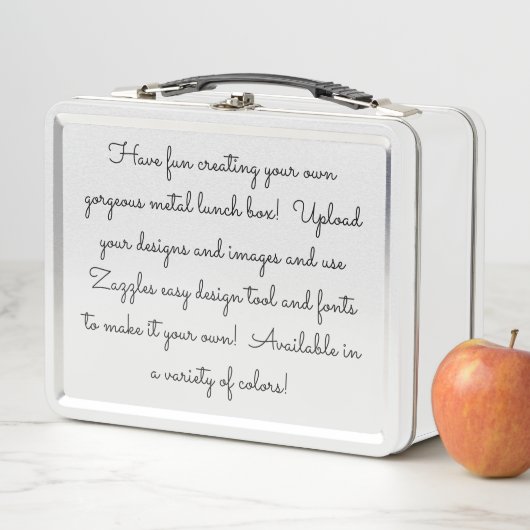 Have fun creating your own
gorgeous metal lunch box! Upload
your designs and images and use
Zazzles easy design tool and fonts
to make it your own! Available in
a variety of colors!